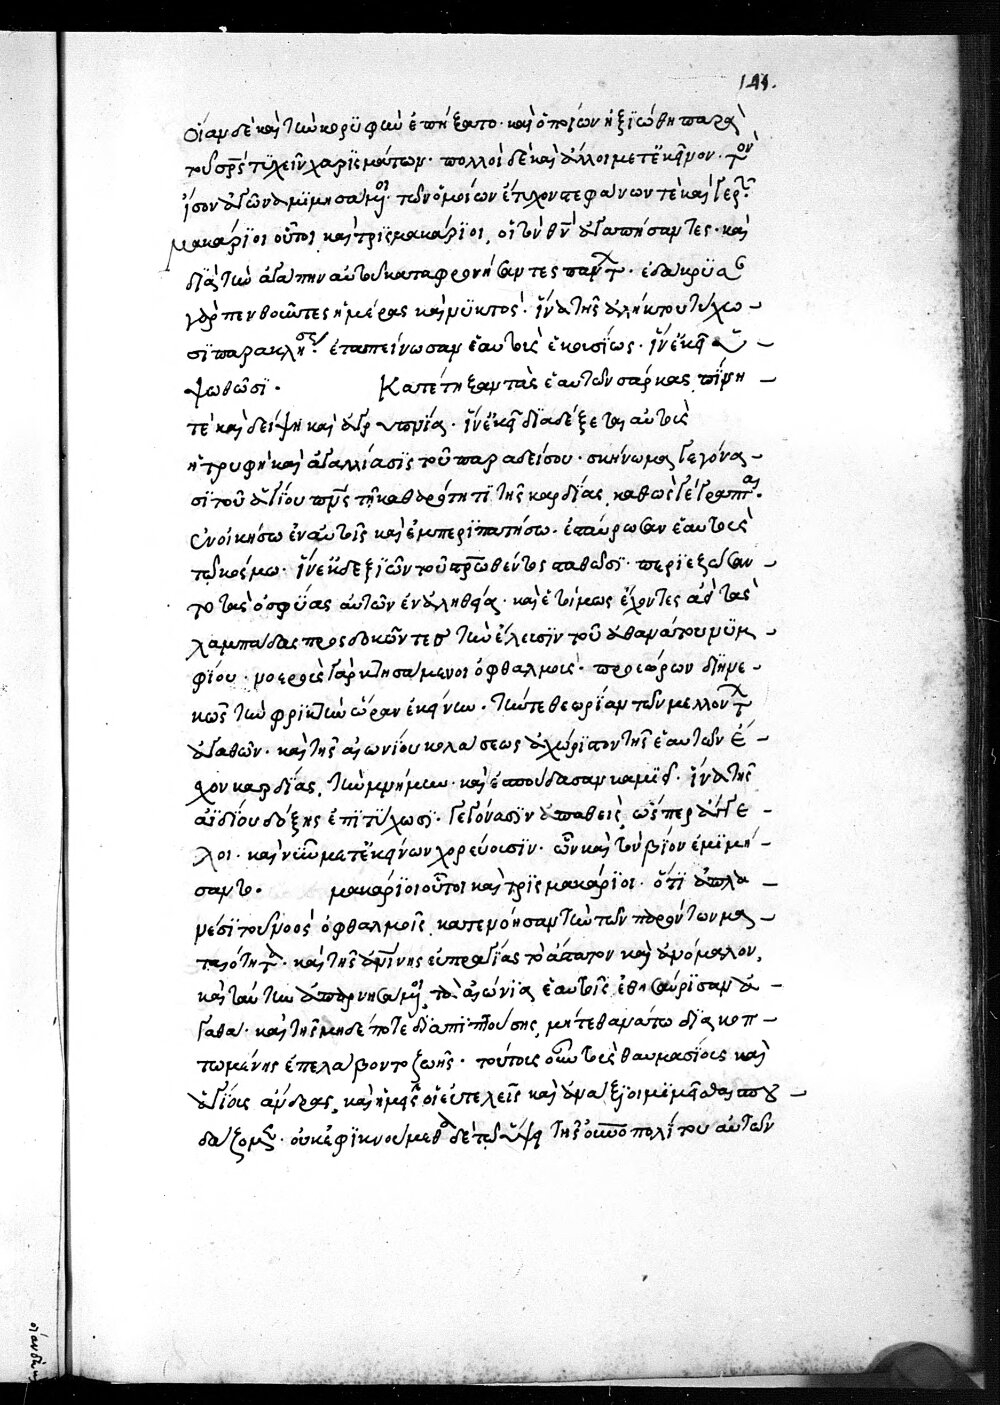 141.
οἵαν δὲ καὶ τὴν κορυφὴν ἐπήξατο· καὶ ὁποίων ἠξιώθη παρὰ
τοῦ πρς τυχεῖν χαρισμάτων· πολλοὶ δὲ καὶ ἄλλοι μετ' ἐκεῖνον· τὸν
ἴσον ἀγῶνα μιμησάμενοι τῶν ὁμοίων ἔτυχον στεφάνων τὲ καὶ γερῶν
μακάριοι οὗτοι καὶ τρισμακάριοι, οἱ τὸν θν ἀγαπήσαντες· καὶ
διὰ τὴν ἀγάπην αὐτοῦ καταφρονήσαντες πάντων· ἐδάκρυσαν
γὰρ πενθοῦντες ἡμέρας καὶ νυκτὸς· ἵνα τῆς ἀλήκτου τύχω
σι παρακλήσεως· ἐταπείνωσαν ἑαυτοὺς ἑκουσίως· ἵν' ἐκεῖ
ψωθῶσι· Κατέτηξαν τὰς ἑαυτῶν σάρκας πείνη
τὲ καὶ δίψη καὶ ἀγρυπνία· ἵν' ἐκεῖ διαδέξεται αὐτοὺς
ἡ τρυφὴ καὶ ἀγαλλίασις τοῦ παραδείσου· σκήνωμα γεγόνα
σι τοῦ ἁγίου πνς τῆ καθαρότητι τῆς καρδίας, καθὼς γέγραπται·
ἐνοικήσω ἐν αὐτοῖς καὶ ἐμπεριπατήσω· ἐσταύρωσαν ἑαυτοὺς
τῶ κόσμω· ἵν' ἐκ δεξιῶν τοῦ σταυρωθέντος σταθῶσι· περιεζώσαν
το τὰς ὀσφύας αὐτῶν ἐν ἀληθεία· καὶ ἑτοίμως ἔχοντες ἀεὶ τὰς
λαμπάδας προσδοκῶντες τὴν ἔλευσιν τοῦ ἀθανάτου νυμ
φίου· νοεροὺς γὰρ κτησάμενοι ὀφθαλμοὺς· προεώρων διηνε
κῶς τὴν φρικτὴν ὥραν ἐκείνην· τήν τε θεωρίαν τῶν μελλόντων
ἀγαθῶν· καὶ τῆς αἰωνίου κολάσεως ἀχώριστον τῆς ἑαυτῶν εἶ
χον καρδίας, τὴν μνήμην· καὶ ἐσπούδασαν καμεῖν· ἵνα τῆς
ἀϊδίου δόξης ἐπιτύχωσι· γεγόνασιν ἀπαθεῖς ὥσπερ ἄγγε
λοι· καὶ νῦν μετ' ἐκείνων χορεύουσιν· ὧν καὶ τὸν βίον ἐμιμή
σαντο· μακάριοι οὗτοι καὶ τρισμακάριοι· ὅτι ἀπλα
νέσι τοῦ νοὸς ὀφθαλμοῖς κατενόησαν τὴν τῶν παρόντων μα
ταιότητα· καὶ τῆς ἀνίνης εὐπραγίας τὸ ἄστατον καὶ ἀνώμαλον,
καὶ ταύτην ἀπαρνησάμενοι, τὰ αἰώνια ἑαυτοῖς ἐθησαύρισαν ἀ
γαθὰ· καὶ τῆς μηδέποτε διαπιπτούσης, μήτε θανάτω διακοπ
τομένης ἐπελάβοντο ζωῆς· τούτους οὖν τοὺς θαυμασίους καὶ
ἁγίους ἄνδρας, καὶ ἡμεῖς οἱ εὐτελεῖς καὶ ἀνάξιοι μιμεῖσθαι σπου
δάζομεν· οὐκ ἐφικνούμεθα δὲ τῶ ὕψει τῆς οὐνοπολίτου αὐτῶν